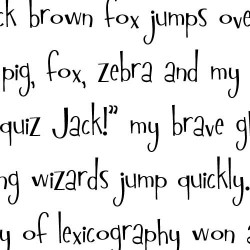 ck brown fox jumps ove
pig, fox, zebra and my
quiz Jack!" my brave g
ng wizards jump quickly.
y of lexicography won a